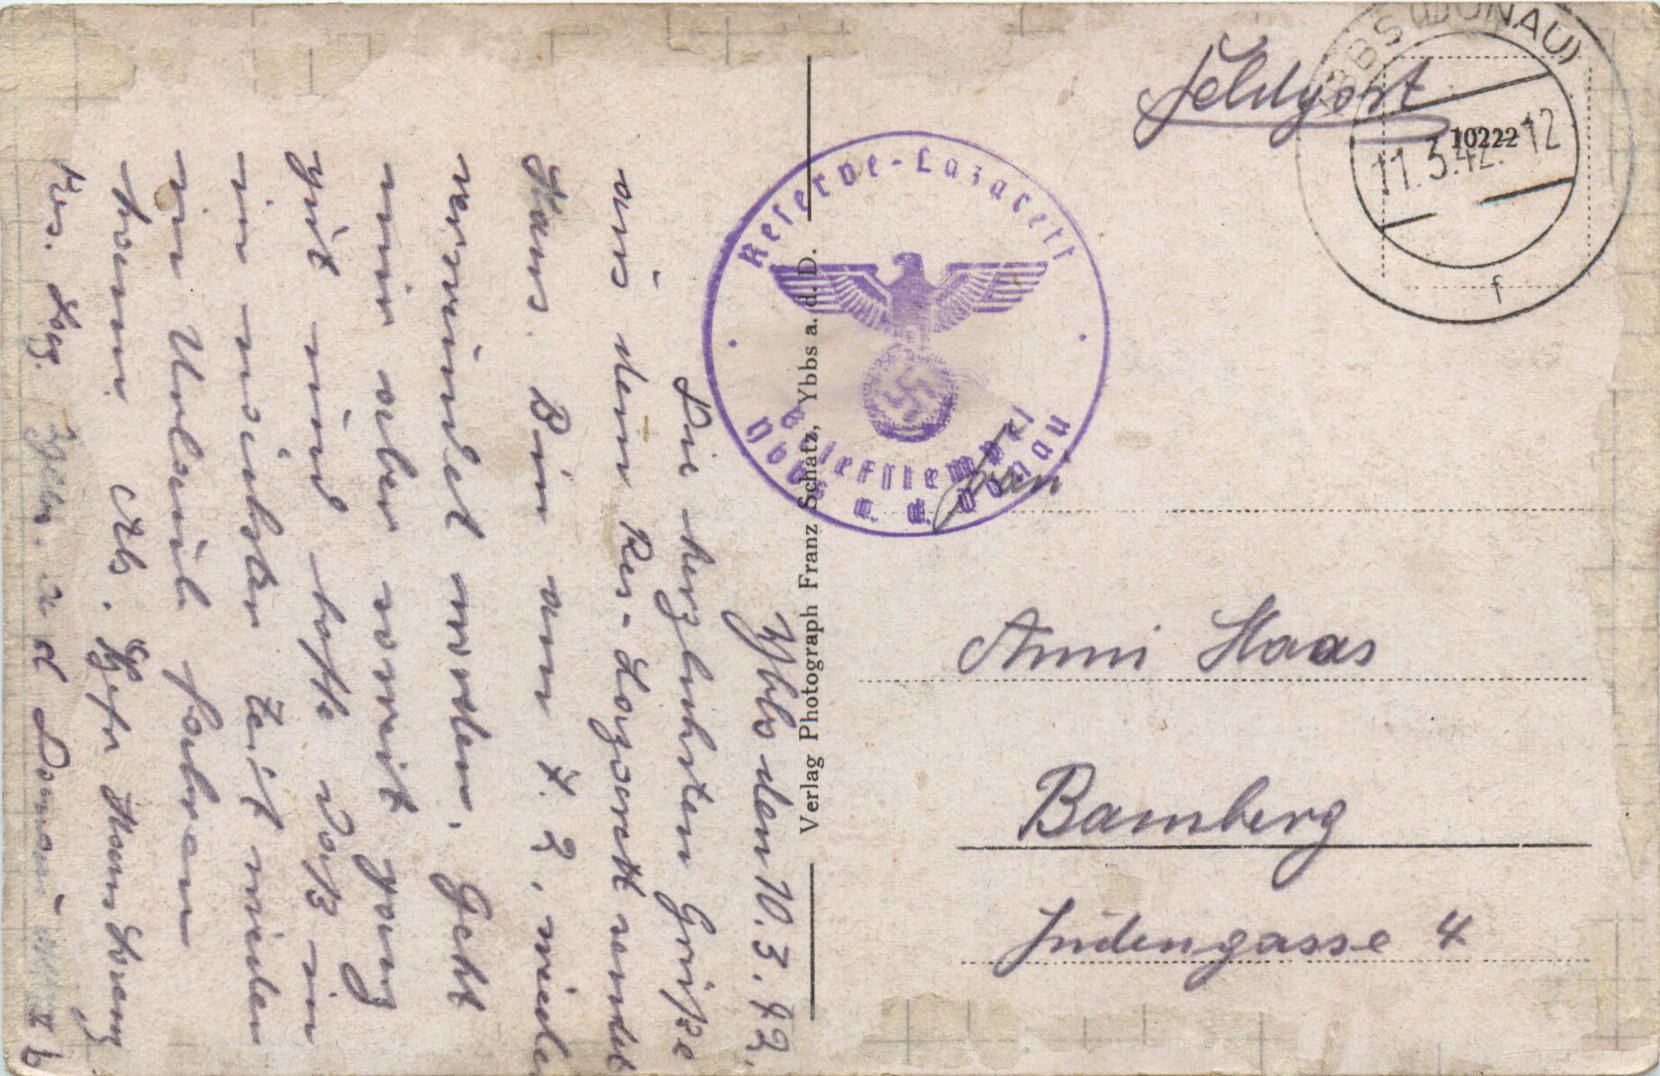 Feldpost
YBBS (DONAU)
11.3.42. 12
10222
f
Reserve-Lazarett
Briefstempel
Ybbs a. d. Donau
Frau
Anni Haas
Bamberg
Judengasse 4
Verlag Photograph Franz Schatz, Ybbs a. d. D.
Ybbs den 10. 3. 42.
Die herzlichsten Grüße
aus dem Res.-Lazarett sendet
Hans. Bin am 7. 2. wieder
verwundet worden. Geht
mir aber soweit ganz
gut und hoffe daß ich
in nächster Zeit wieder
in Urlaub fahren
kann. Abs. Gefr. Hans
Res. Laz. Ybbs a d Donau II b